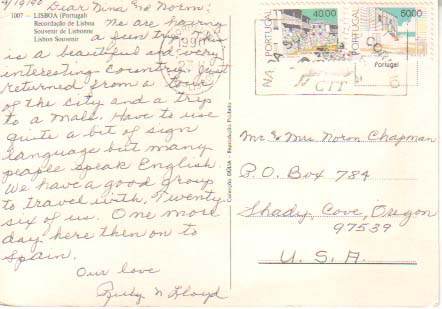 4/19/90 Dear Nina and Norm:
1007 — LISBOA (Portugal)
Recordação de Lisboa
Souvenir de Lisbonne
Lisbon Souvenir
We are having
a fun trip. This
is a beautiful and very
interesting country. Just
returned from a tour
of the city and a trip
to a Mall. Have to use
quite a bit of sign
language but many
people speak English.
We have a good group
to travel with. Twenty
six of us. One more
day here then on to
Spain.
Our love
Rudy n Lloyd
PORTUGAL 40.00
PORTUGAL 60.00
Portugal
CTT
Mr & Mrs Norm Chapman
P.O. Box 784
Shady Cove, Oregon
97539
U.S.A.